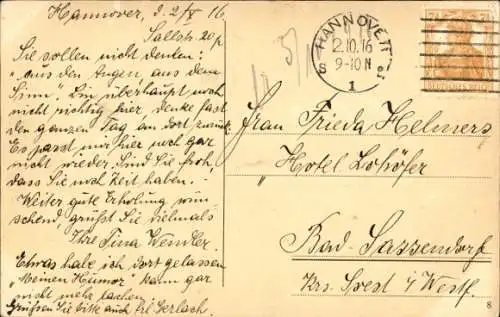 Hannover, d. 2/X 16.
Sallstr. 20 p.
Sie sollen nicht denken:
"aus den Augen, aus dem
Sinn". Bin überhaupt noch
nicht richtig hier, denke fast
den ganzen Tag an dort zurück.
Es passt mir hier noch gar
nicht wieder. Sind Sie froh,
dass Sie noch Zeit haben.
Weiter gute Erholung wün-
schend grüßt Sie vielmals
Ihre Tina Wendler.
Etwas habe ich dort gelassen
"Meinen Humor" kann gar
nicht mehr lachen.
Grüßen Sie bitte auch Frl. Gerlach.
HANNOVER
2.10.16
9-10 N
S
1
DEUTSCHES REICH
Frau Frieda Helmers
Hotel Lohöfer
Bad-Sassendorf
Krs. Soest i/Westf.
8